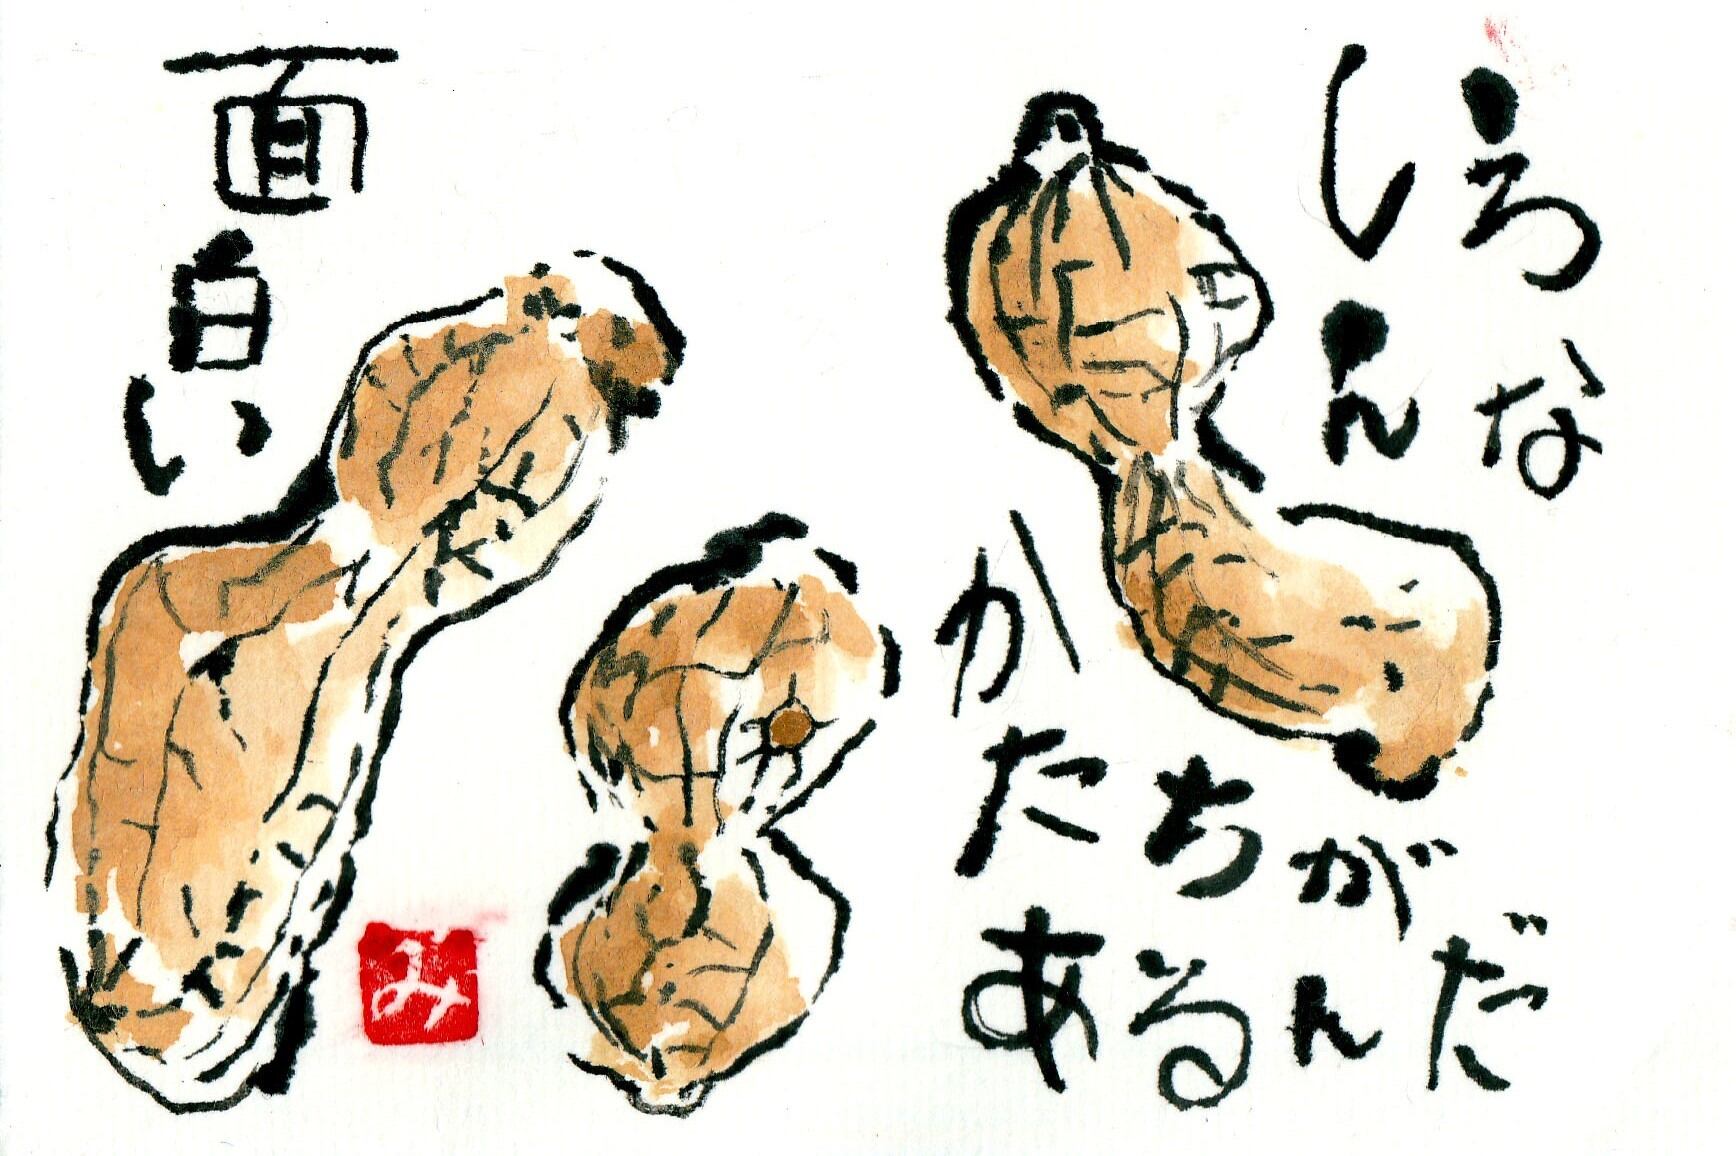 いろ
んな
か
たちが
あるんだ
面白い
み